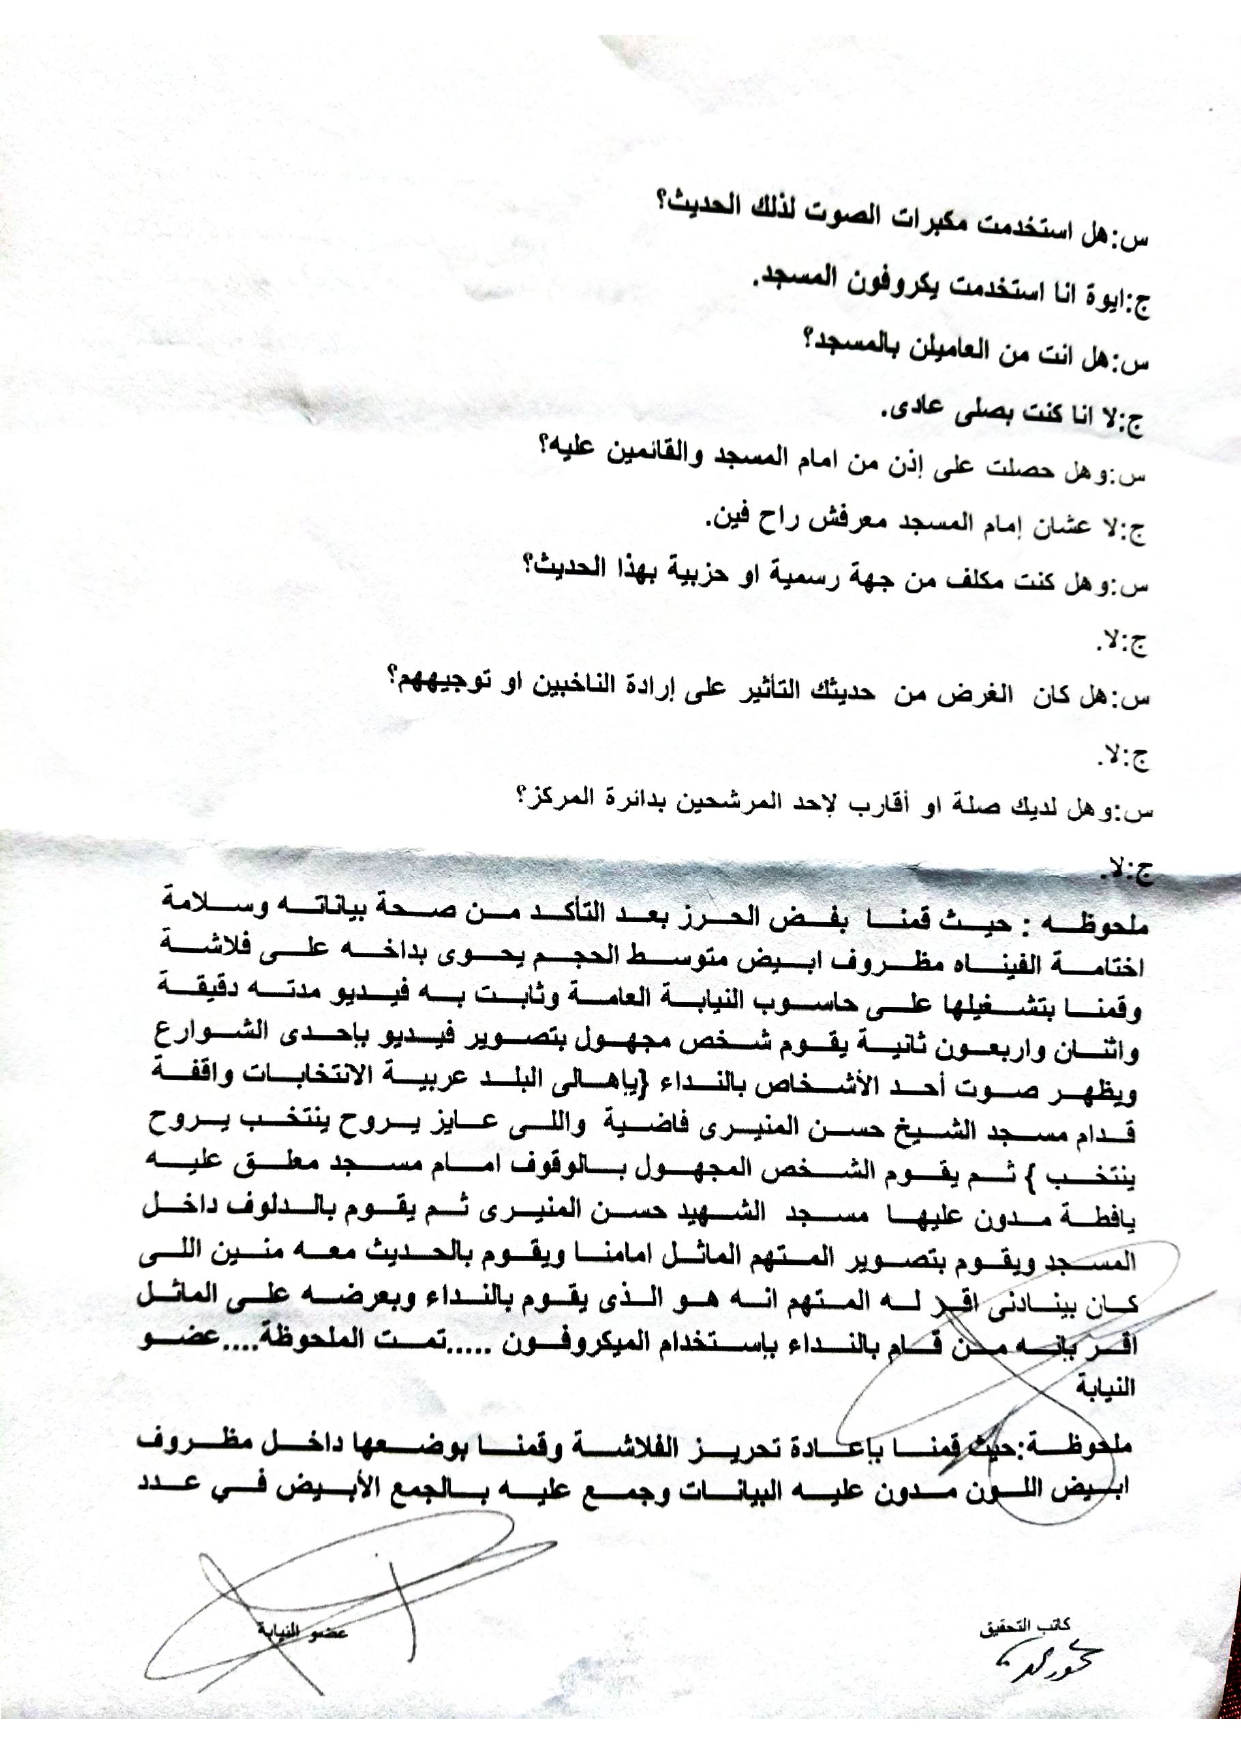 س:هل استخدمت مكبرات الصوت لذلك الحديث؟
ج:ايوة انا استخدمت يكروفون المسجد.
س:هل انت من العاميلن بالمسجد؟
ج:لا انا كنت بصلى عادى.
س:وهل حصلت على إذن من امام المسجد والقائمين عليه؟
ج:لا عشان إمام المسجد معرفش راح فين.
س:وهل كنت مكلف من جهة رسمية او حزبية بهذا الحديث؟
ج:لا.
س:هل كان الغرض من حديثك التأثير على إرادة الناخبين او توجيههم؟
ج:لا.
س:وهل لديك صلة او أقارب لإحد المرشحين بدائرة المركز؟
ج:لا.
ملحوظه : حيث قمنا بفض الحرز بعد التأكد من صحة بياناته وسلامة
اختامة الفيناه مظروف ابيض متوسط الحجم يحوى بداخه على فلاشة
وقمنا بتشغيلها على حاسوب النيابة العامة وثابت به فيديو مدته دقيقة
واثنان واربعون ثانية يقوم شخص مجهول بتصوير فيديو بإحدى الشوارع
ويظهر صوت أحد الأشخاص بالنداء {ياهالى البلد عربية الانتخابات واقفة
قدام مسجد الشيخ حسن المنيرى فاضية واللى عايز يروح ينتخب يروح
ينتخب } ثم يقوم الشخص المجهول بالوقوف امام مسجد معلق عليه
يافطة مدون عليها مسجد الشهيد حسن المنيرى ثم يقوم بالدلوف داخل
المسجد ويقوم بتصوير المتهم الماثل امامنا ويقوم بالحديث معه منين اللى
كان بينادنى اقر له المتهم انه هو الذى يقوم بالنداء وبعرضه على الماثل
اقر بإنه من قام بالنداء بإستخدام الميكروفون .....تمت الملحوظة....عضو
النيابة
ملحوظة:حيث قمنا بإعادة تحريز الفلاشة وقمنا بوضعها داخل مظروف
ابيض اللون مدون عليه البيانات وجمع عليه بالجمع الأبيض في عدد
كاتب التحقيق
عضو النيابة